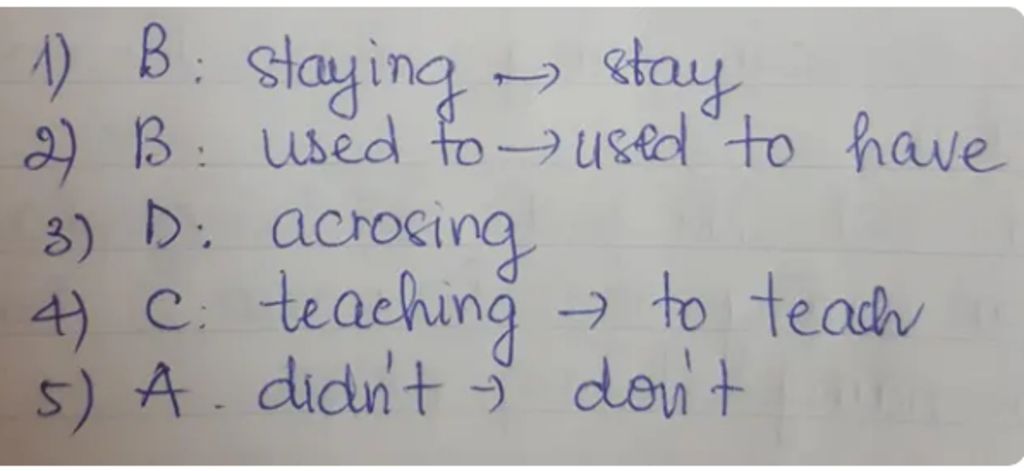 1) B: staying → stay
2) B: used to → used to have
3) D: acrosing
4) C: teaching → to teach
5) A. didn't → don't